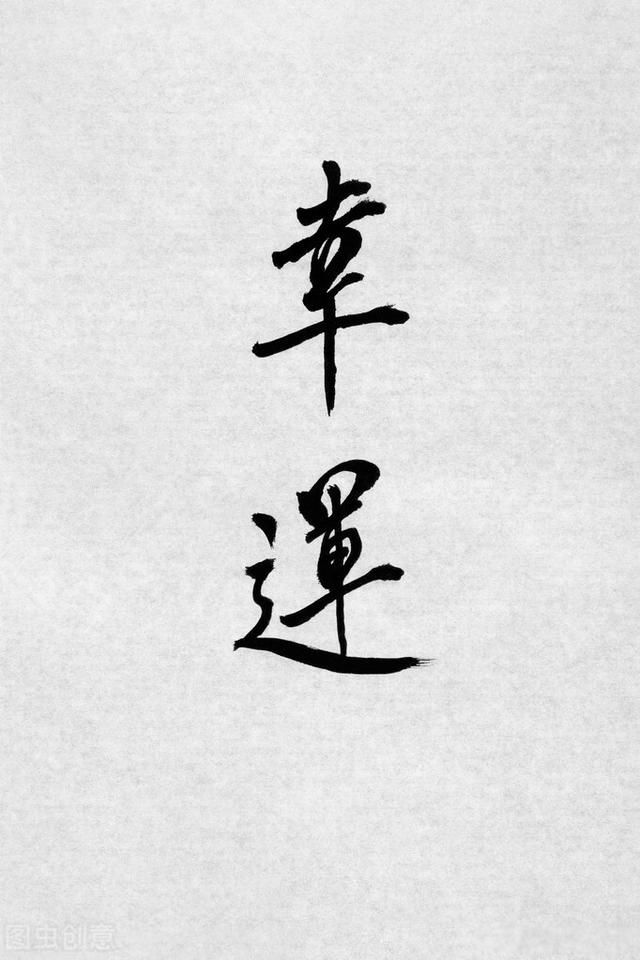 幸運
图虫创意